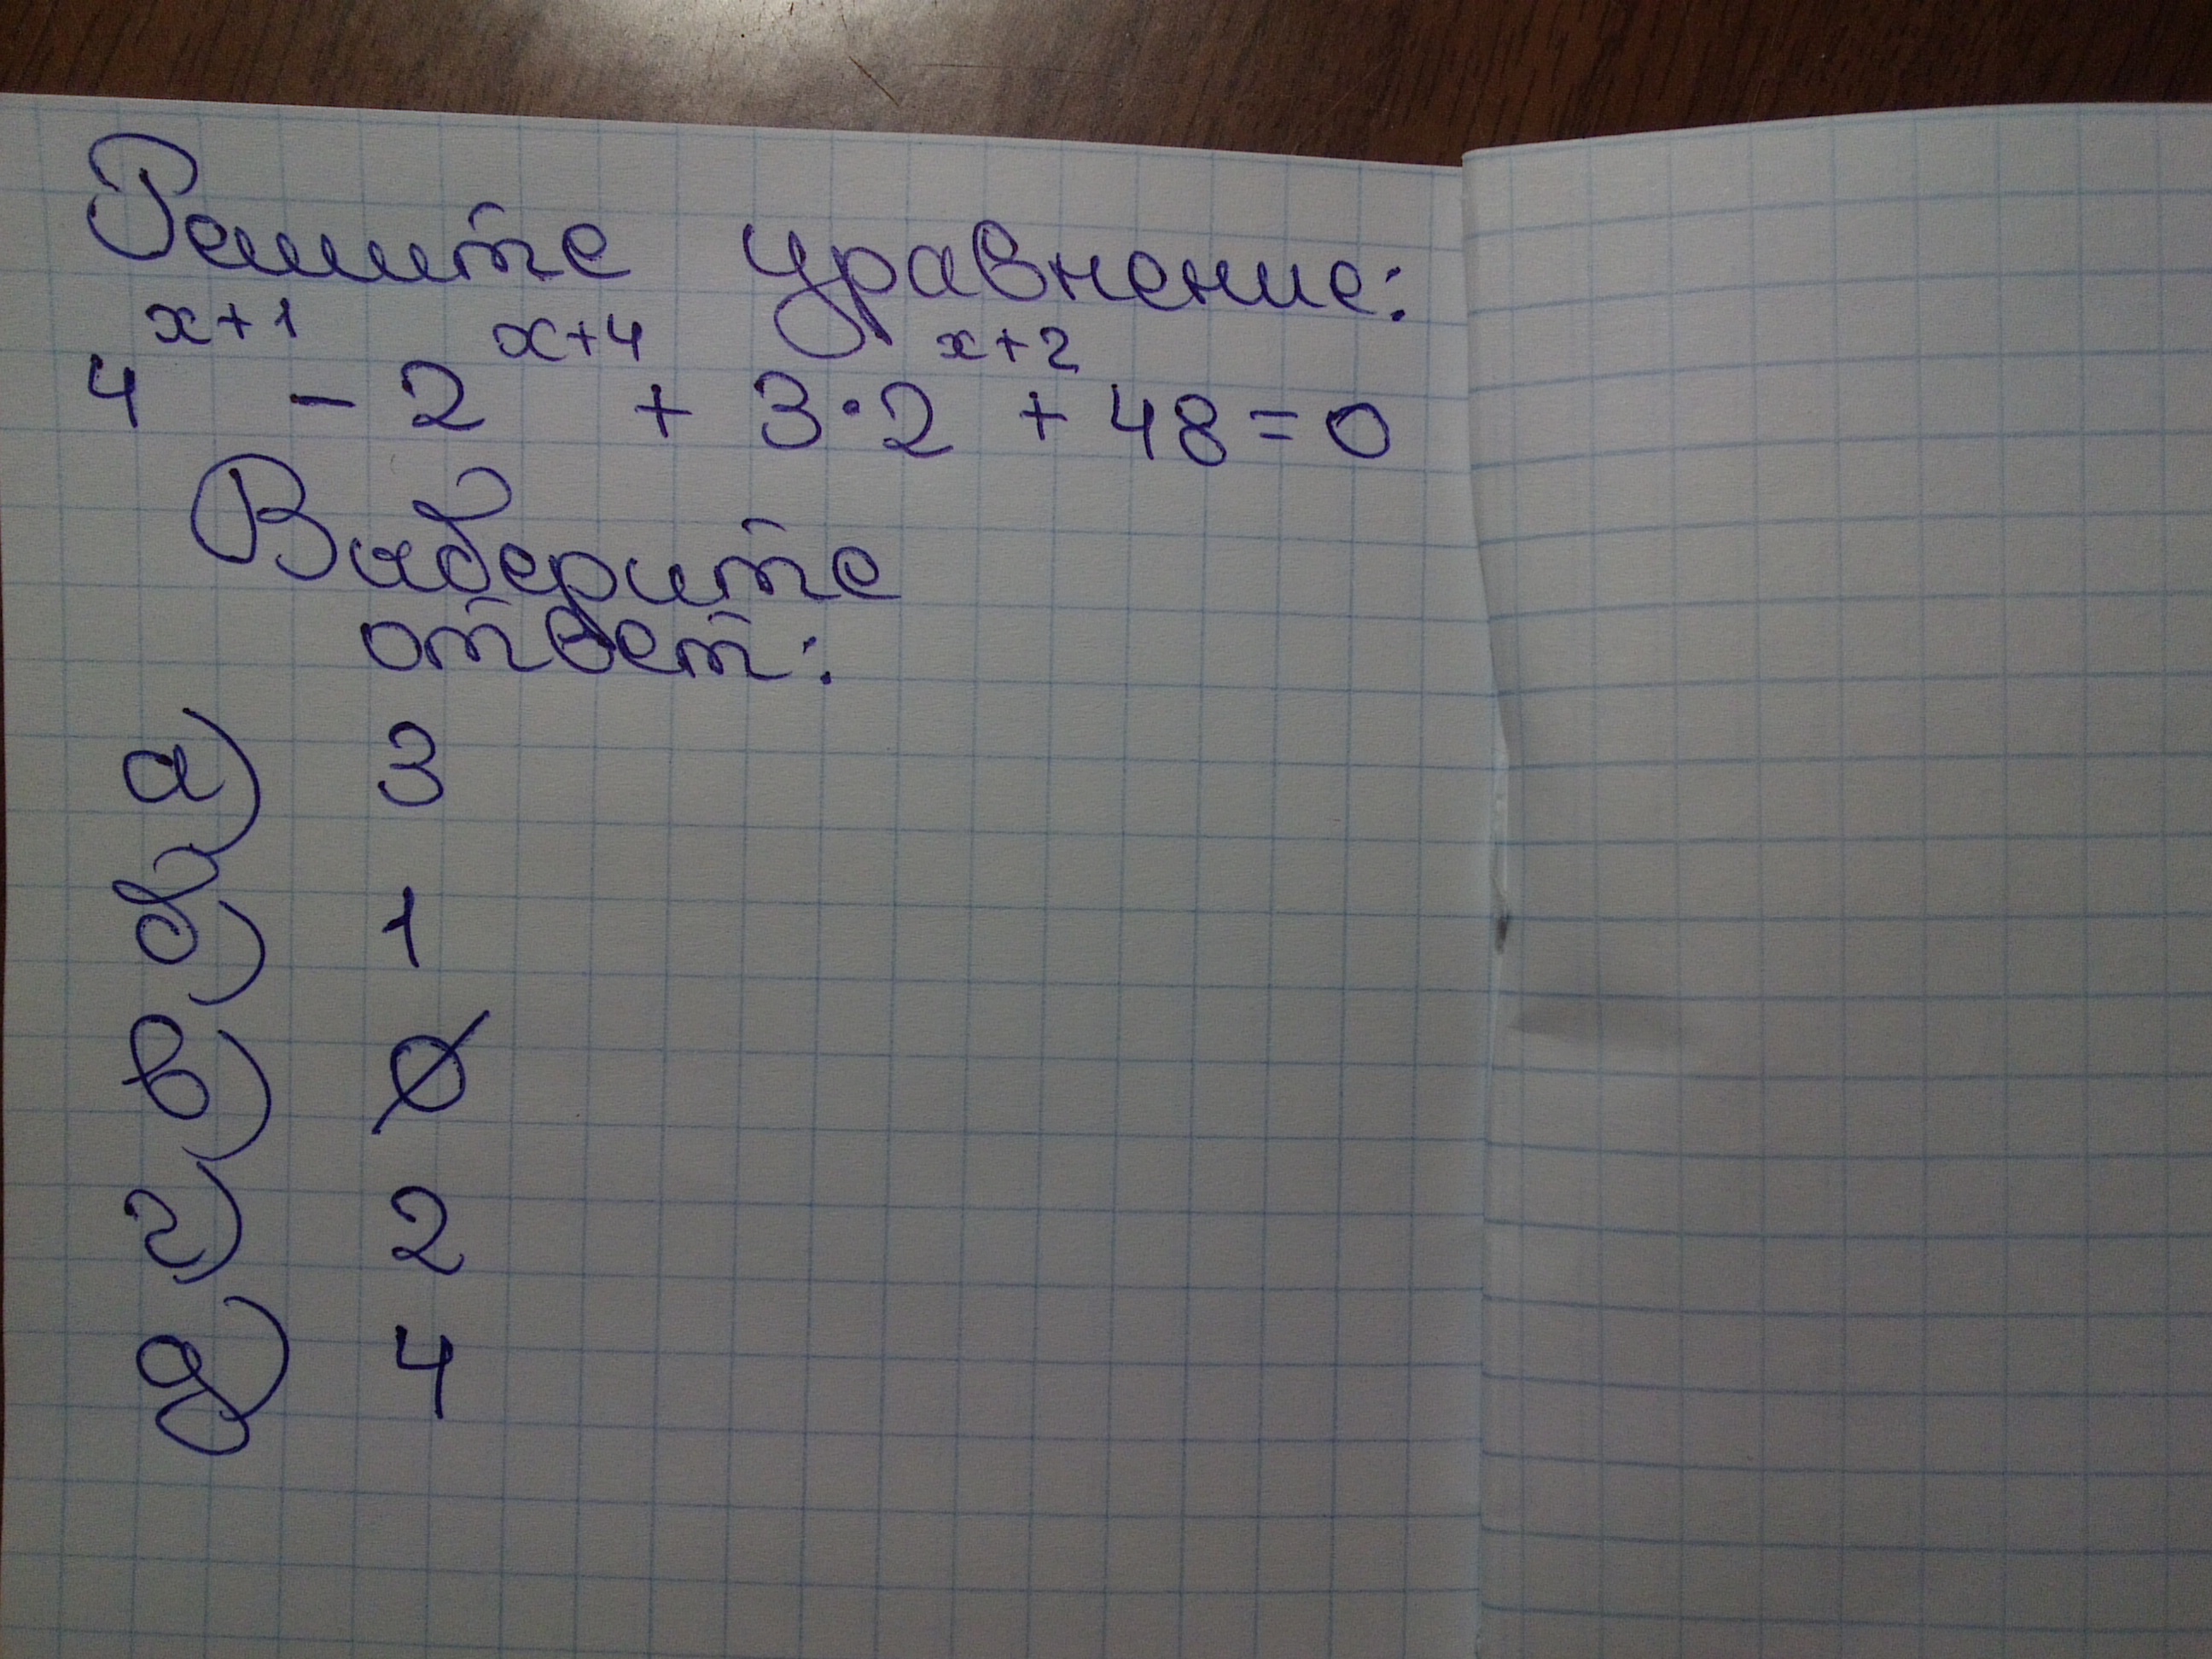 Решите уравнение:
4^(x+1) - 2^(x+4) + 3·2^(x+2) + 48 = 0
Выберите
ответ:
а) 3
б) 1
в) ∅
г) 2
д) 4